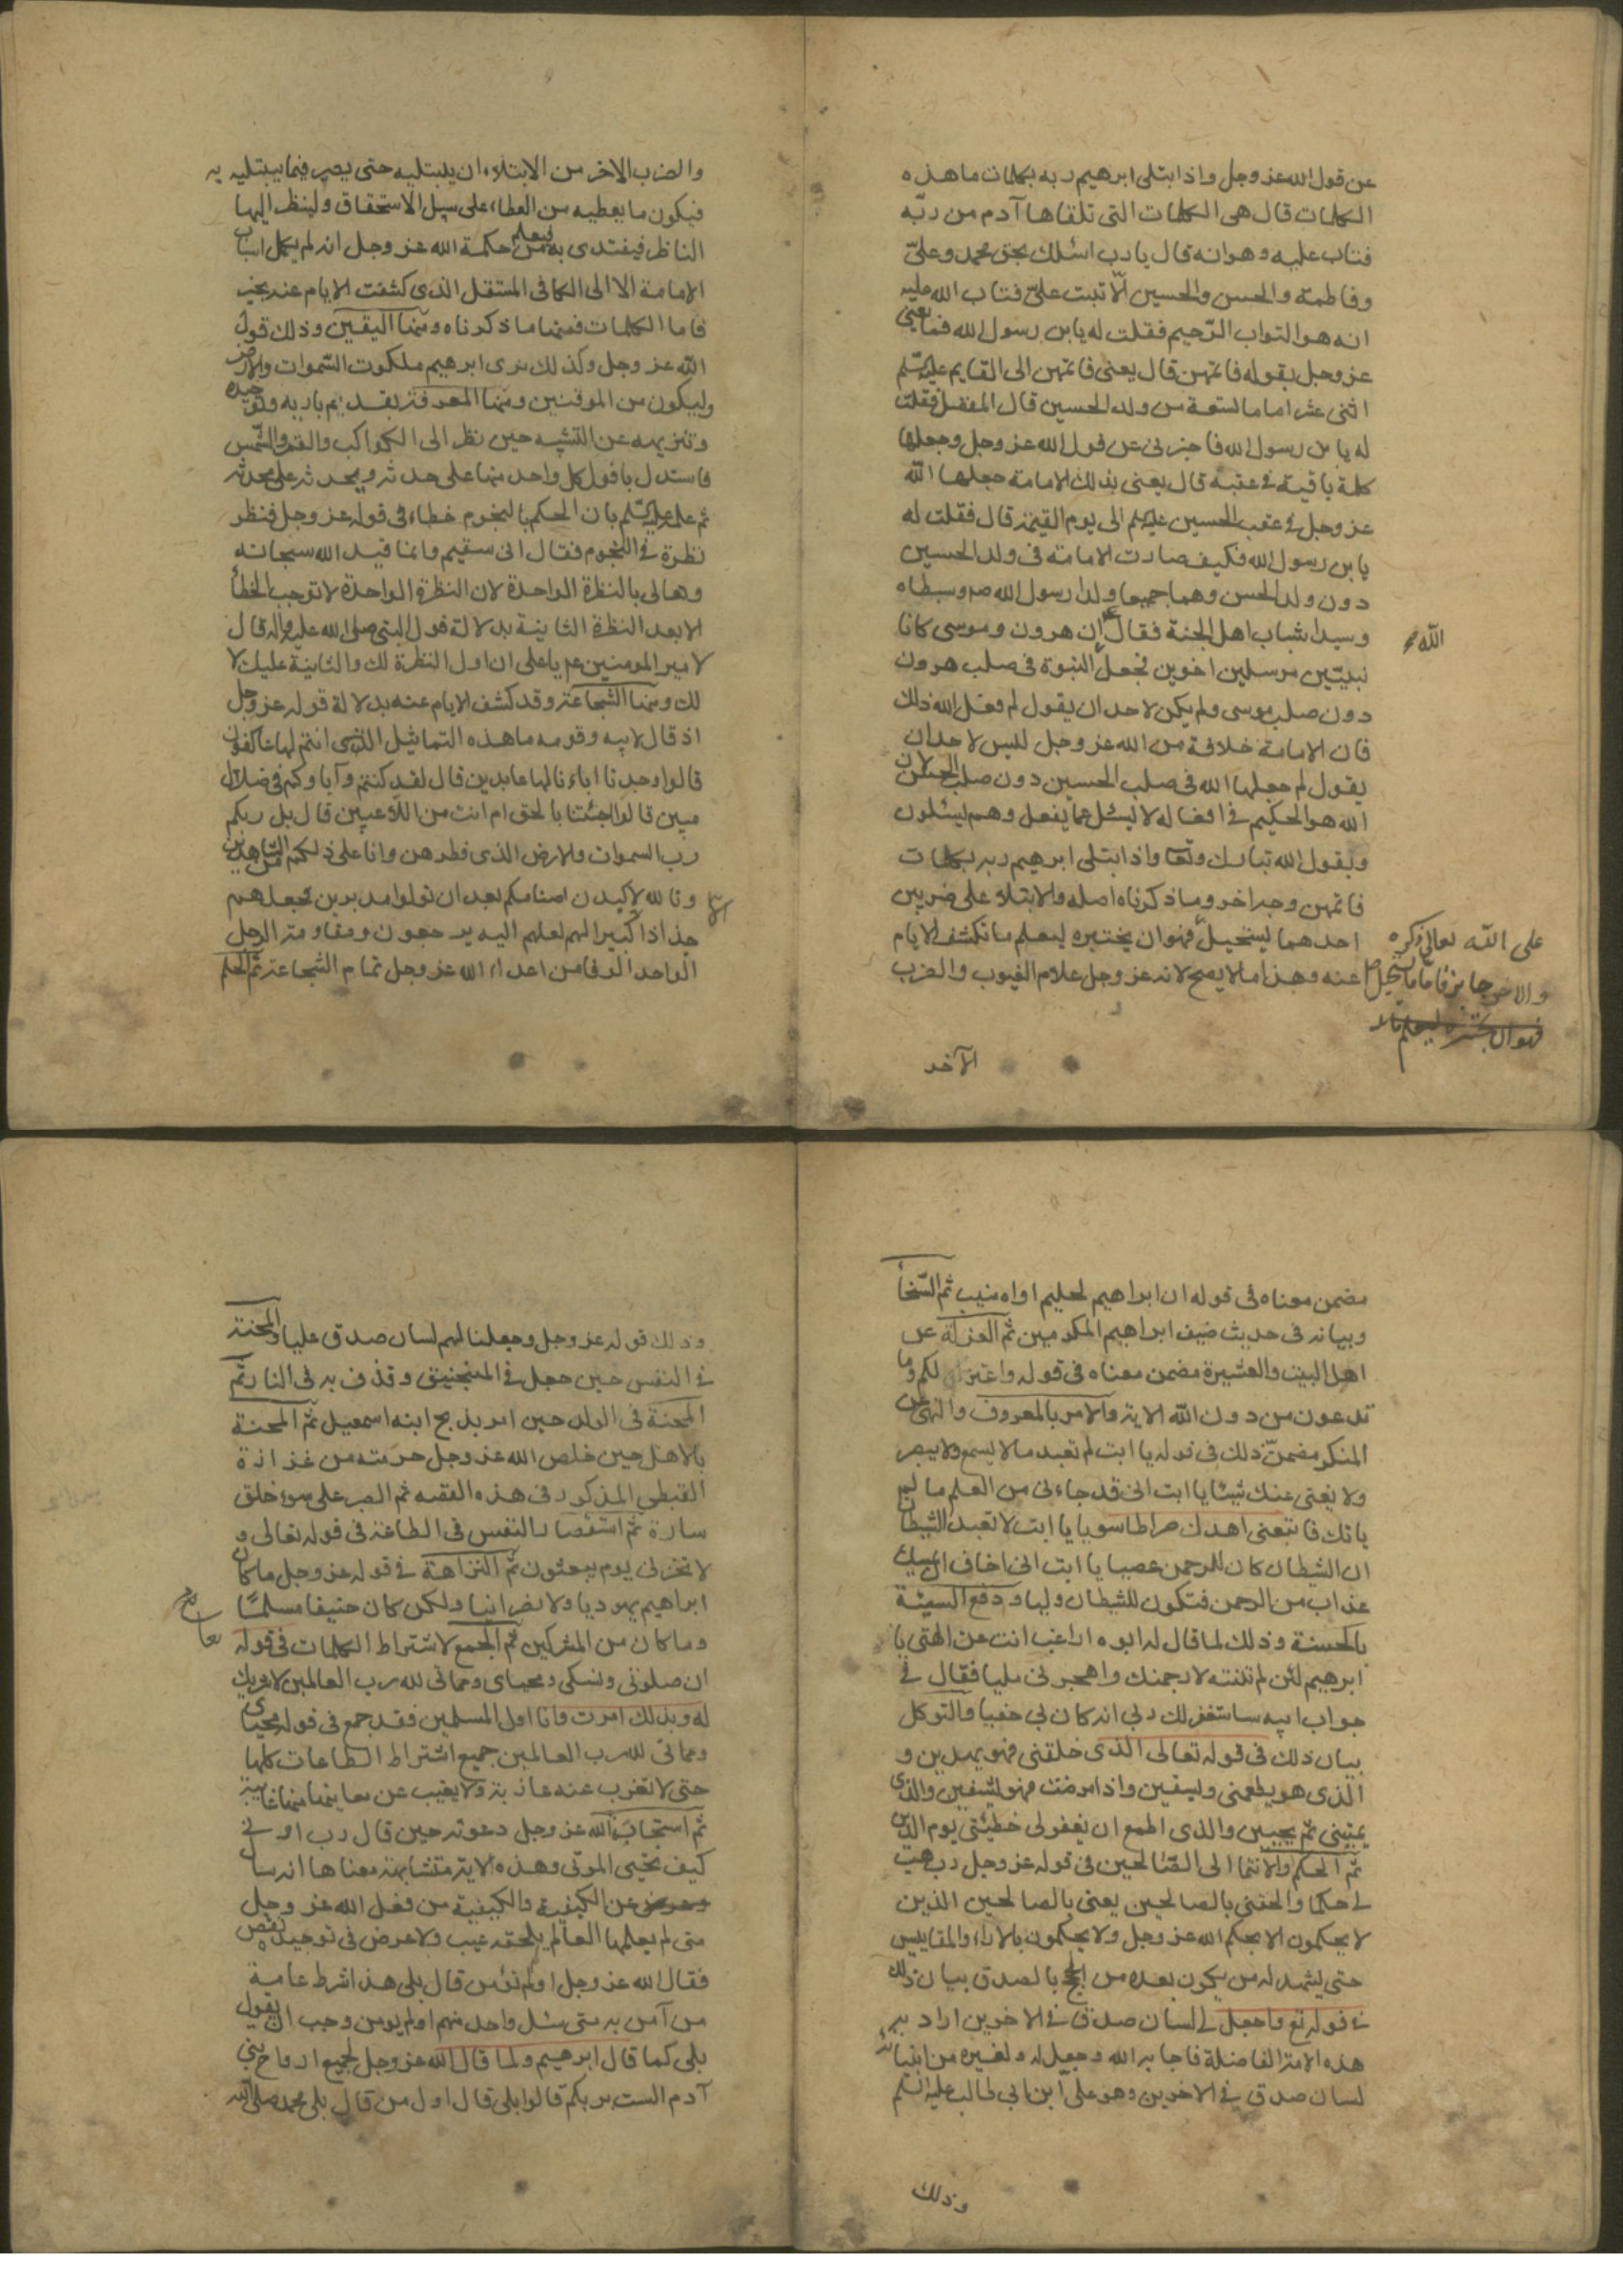 عن قول الله عز وجل واذا ابتلى ابرهيم ربه بكلمات ما هذه
الكلمات قال هى الكلمات التى تلقاها آدم من ربّه
فتاب عليه وهو انه قال يا رب اسئلك بحق محمد وعلىّ
وفاطمة والحسن والحسين الّا تبت علىّ فتاب الله عليه
انه هو التواب الرّحيم فقلت له يابن رسول الله فما يعنى
عز وجل بقوله فاتمهن قال يعنى فاتمهن الى القايم عليه السلم
اثنى عشر اماما تسعة من ولد الحسين قال المفضل فقلت
له يا بن رسول الله فاخبرنى عن قول الله عز وجل وجعلها
كلمة باقية فى عقبه قال يعنى بذلك الامامة جعلها اللّه
عز وجل فى عقب الحسين عليه السلم الى يوم القيمة قال فقلت له
يا بن رسول الله فكيف صارت الامامة فى ولد الحسين
دون ولد الحسن وهما جميعا ولدا رسول الله ص وسبطاه
وسيدا شباب اهل الجنة فقال ع ان هرون وموسى كانا
نبيّين مرسلين اخوين فجعل النبوة فى صلب هرون
اللّه
دون صلب موسى ولم يكن لاحد ان يقول لم فعل الله ذلك
فان الامامة خلافة من الله عز وجل لليس لاحد ان
يقول لم جعلها الله فى صلب الحسين دون صلب الحسن لان
الله هو الحكيم فى افعاله لا يسئل عمّا يفعل وهم يسئلون
ويقول الله تبارك وتعا واذا ابتلى ابرهيم ربه بكلمات
فاتمهن وجه اخر وما ذكرناه اصله والابتلاء على ضربين
احدهما يستحيل فهو ان يختبره ليعلم ما تكشف الايام
عنه وهذا ما لا يصح لانه عز وجل علام الغيوب والضرب
على اللّه تعالى ذكره
والاخر جايز فاما ما يستحيل
فهو ان يختبره ليعلم ما
الآخر
والضرب الاخر من الابتلاء ان يبتليه حتى يصبر فيما يبتليه به
فيكون ما يعطيه من العطاء على سبيل الاستحقاق ولينظر اليها
الناظر فيقتدى به فيعلم من حكمة الله عز وجل انه لم يكل اسباب
الامامة الا الى الكافى المستقل الذى كشفت الايام عنه بخبر
فاما الكلمات فمنها ما ذكرناه ومنها اليقين وذلك قول
اللّه عز وجل وكذلك نرى ابرهيم ملكوت السّموات والارض
وليكون من الموقنين ومنها المعرفة بقديم باريه وتوحيده
وتنزيهه عن التشبيه حين نظر الى الكواكب والقمر والشّمس
فاستدل بافول كل واحد منها على حدثه وبحدثه على محدثه
ثم علمه عليه السّلم بان الحكم بالنجوم خطاء فى قوله عز وجل فنظر
نظرة فى النجوم فقال انى سقيم وانما قيد الله سبحانه
وتعالى بالنظرة الواحدة لان النظرة الواحدة لا توجب الخطأ
الا بعد النظرة الثانية بدلالة قول النبى صلى الله عليه واله قال
لامير المومنين ع يا على ان اول النظرة لك والثانية عليك لا
لك ومنها الشجاعة وقد كشف الايام عنه بدلالة قوله عز وجل
اذ قال لابيه وقومه ما هذه التماثيل التى انتم لها عاكفون
قالوا وجدنا اباءنا لها عابدين قال لقد كنتم وآباوكم فى ضلال
مبين قالوا اجئتنا بالحق ام انت من اللّاعبين قال بل ربكم
رب السموات والارض الذى فطرهن وانا على ذلكم من الشّاهدين
وتالله لاكيدن اصنامكم بعد ان تولوا مدبرين فجعلهم
جذاذا كبيرا لهم لعلهم اليه يرجعون ومقاومة الرجل
الواحد الوفا من اعداء الله عز وجل تمام الشجاعة ثمّ الحلم
مضمن معناه فى قوله ان ابراهيم لحليم اواه منيب ثم السّخأ
وبيانه فى حديث ضيف ابراهيم المكرمين ثم العزلة عن
اهل البيت والعشيرة مضمن معناه فى قوله واعتزلكم وما
تدعون من دون اللّه الاية والامر بالمعروف والنهى عن
المنكر مضمنّ ذلك فى قوله يا ابت لم تعبد ما لا يسمع ولا يبصر
ولا يغنى عنك شيئا يا ابت انى قد جاءنى من العلم ما لم
ياتك فاتبعنى اهدك صراطا سويا يا ابت لا تعبد الشيطان
ان الشيطان كان للرحمن عصيا يا ابت انى اخاف ان يمسك
عذاب من الرحمن فتكون للشيطان وليا ودفع السيئة
بالحسنة وذلك لما قال له ابوه اراغب انت عن الهتى يا
ابرهيم لئن لم تنته لارجمنك واهجرنى مليا فقال فى
جواب ابيه ساستغفر لك ربى انه كان بى حفيا والتوكل
بيان ذلك فى قوله تعالى الذى خلقنى فهو يهدين و
الذى هو يطعمنى ويسقين واذا مرضت فهو يشفين والذى
يميتنى ثم يحيين والذى اطمع ان يغفر لى خطيئتى يوم الدّين
ثم الحكم والانتما الى الصّالحين فى قوله عز وجل رب هب
لى حكما والحقنى بالصالحين يعنى بالصالحين الذين
لا يحكمون الا بحكم الله عز وجل ولا يحكمون بالاراء والمقاييس
حتى يشهد له من يكون بعده من الحج بالصدق بيان ذلك
فى قوله تع واجعل لى لسان صدق فى الاخرين اراد به
هذه الامة الفاضلة فاجابه الله وجعل له ولغيره من انبيائه
لسان صدق فى الاخرين وهو على ابن ابى طالب عليه السّلم
وذلك
وذلك قوله عز وجل وجعلنا لهم لسان صدق عليا والمحنة
فى النفس حين جعل فى المنجنيق وقذف به فى النار ثمّ
المحنة فى الولد حين امر بذبح ابنه اسمعيل ثم المحنة
بالاهل حين خلص الله عز وجل حرمته من غزازة
القبطى المذكور فى هذه القصه ثم الصبر على سوء خلق
سارة ثم استقصار النفس فى الطاعة فى قوله تعالى و
لا تخزنى يوم يبعثون ثم النزاهة فى قوله عز وجل ما كان
ابراهيم يهوديا ولا نصرانيا ولكن كان حنيفا مسلمًا
وما كان من المشركين ثم الجمع لاشتراط الكلمات فى قوله
ان صلوتى ونسكى ومحياى ومماتى لله رب العالمين لا شريك
له وبذلك امرت وانا اول المسلمين فقد جمع فى قوله محياى
ومماتى لله رب العالمين جميع اشتراط الطاعات كلها
حتى لا تعزب عنه عازبة ولا يغيب عن معاينها منها غايبة
ثم استجاب الله عز وجل دعوته حين قال رب ارنى
كيف تحيى الموتى وهذه الاية متشابهة معناها انه سال
عن الكيفية والكيفية من فعل الله عز وجل
متى لم يعلمها العالم لم يلحقه عيب ولا عرض فى توحيده نقص
فقال الله عز وجل اولم تؤمن قال بلى هذا شرط عامة
من آمن به متى سئل واحد منهم اولم يومن وجب ان يقول
بلى كما قال ابرهيم ولما قال الله عز وجل لجميع ارواح بنى
آدم الست بربكم قالوا بلى قال اول من قال بلى محمد صلى الله